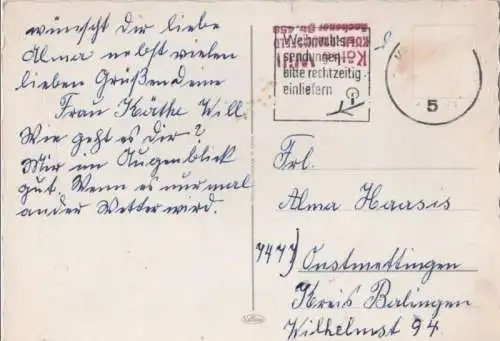 wünscht dir liebe
Alma nebst vielen
lieben Grüßen deine
Frau Käthe Will.
Wie geht es dir?
Mir im Augenblick
gut. Wenn es nur mal
ander Wetter wird.
Weihnachts-
sendungen
bitte rechtzeitig
einliefern
Käthe Will
Aachener Str. 458
5
Frl.
Alma Haasis
7477) Onstmettingen
Kreis Balingen
Wilhelmst 94.